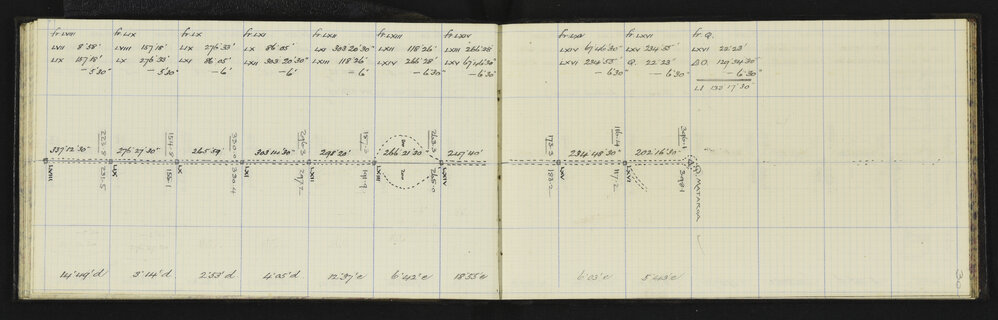 fr. LVIII
LVII 8° 58'
LIX 157° 18'
- 5' 30"
fr. LIX
LVIII 157° 18'
LX 276° 33'
- 5' 30"
fr. LX
LIX 276° 33'
LXI 86° 05'
- 6'
fr. LXI
LX 86° 05'
LXII 303° 20' 30"
- 6'
fr. LXII
LXI 303° 20' 30"
LXIII 118° 26'
- 6'
fr. LXIII
LXII 118° 26'
LXIV 266° 28'
- 6' 30"
fr. LXIV
LXIII 266° 28'
LXV 67° 46' 30"
- 6' 30"
fr. LXV
LXIV 67° 46' 30"
LXVI 234° 55'
- 6' 30"
fr. LXVI
LXV 234° 55'
Q. 22° 23'
- 6' 30"
fr. Q.
LXVI 22° 23'
- 6' 30"
LI 132° 17' 30
337° 12' 30"
276° 27' 30"
265° 59'
303° 14' 30"
298° 20'
266° 21' 30
247° 40'
234° 48' 30"
202° 16' 30"
223.8
154.8
330.0
296.3
263.3
173.3
116.4
LVIII
231.5
LIX
155.1
LX
330.4
LXI
297.2
LXII
LXIII
LXIV
LXV
183.2
LXVI
117.2
MATAROA
14° 49' d
3° 14' d
2° 53' d
4° 05' d
12° 37' e
6° 42' e
18° 55' e
6° 03' e
5° 43' e
30